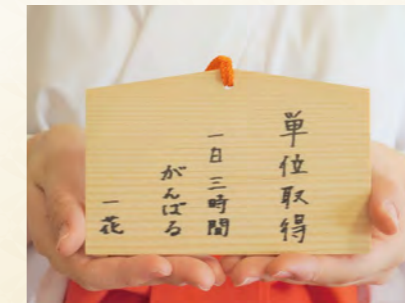 単位取得
一日三時間
がんばる
一花